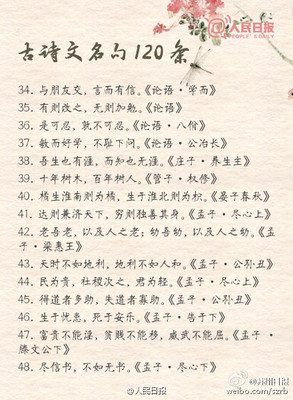 人民日报
PEOPLE'S DAILY
古诗文名句120条
34. 与朋友交，言而有信。《论语·学而》
35. 有则改之，无则加勉。《论语》
36. 是可忍，孰不可忍。《论语·八佾》
37. 敏而好学，不耻下问。《论语·公冶长》
38. 吾生也有涯，而知也无涯。《庄子·养生主》
39. 十年树木，百年树人。《管子·权修》
40. 橘生淮南则为橘，生于淮北则为枳。《晏子春秋》
41. 达则兼济天下，穷则独善其身。《孟子·尽心上》
42. 老吾老，以及人之老；幼吾幼，以及人之幼。《孟
子·梁惠王》
43. 天时不如地利，地利不如人和。《孟子·公孙丑》
44. 民为贵，社稷次之，君为轻。《孟子·尽心下》
45. 得道者多助，失道者寡助。《孟子·公孙丑》
46. 生于忧患，死于安乐。《孟子·告子下》
47. 富贵不能淫，贫贱不能移，威武不能屈。《孟子·
滕文公下》
48. 尽信书，不如无书。《孟子·尽心下》
@人民日报
@深圳日报
weibo.com/szrb